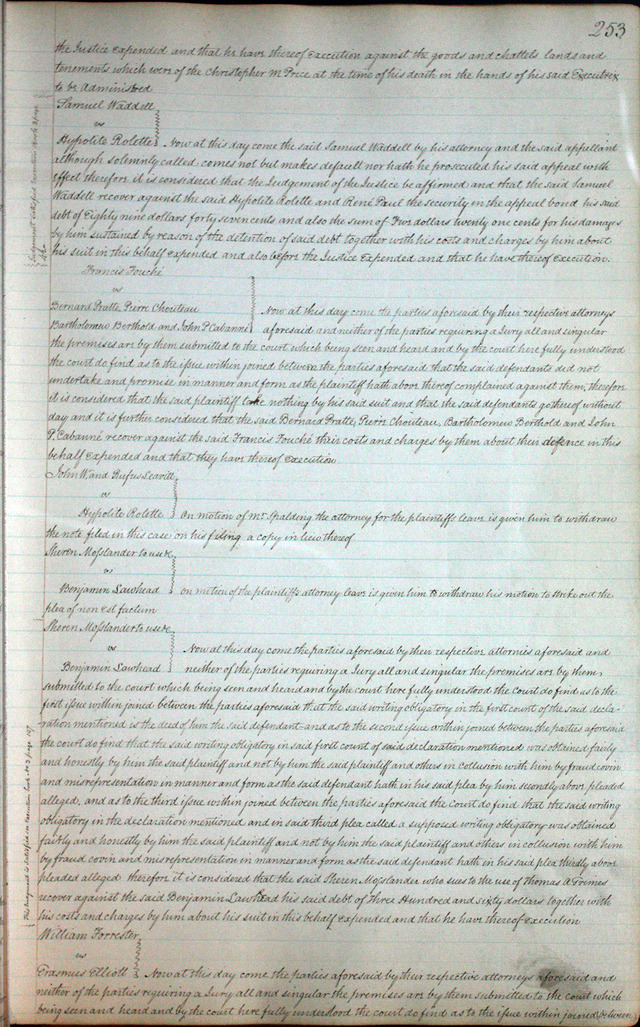 253
the Justice expended and that he have thereof execution against the goods and chattels lands and
tenements which were of the Christopher M Price at the time of his death in the hands of his said Executrix
to be Administered
Samuel Waddell
vs
Hypolite Rolette Now at this day come the said Samuel Waddell by his attorney and the said appellant
although solemnly called comes not but makes default nor hath he prosecuted his said appeal with
effect therefore it is considered that the Judgement of the Justice be affirmed and that the said Samuel
Waddell recover against the said Hypolite Rolette and René Paul the security in the appeal bond his said
debt of Eighty nine dollars forty seven cents and also the sum of Five dollars twenty one cents for his damages
by him sustained by reason of the detention of said debt together with his costs and charges by him about
his suit in this behalf expended and also before the Justice Expended and that he have thereof Execution.
Francis Fouché
vs
Bernard Pratte Pierre Chouteau Now at this day come the parties aforesaid by their respective attorneys
Bartholomew Berthold and John P. Cabanné aforesaid and neither of the parties requiring a Jury all and singular
the premises are by them submitted to the court which being seen and heard and by the court here fully understood
the court do find as to the issue within joined between the parties aforesaid that the said defendants did not
undertake and promise in manner and form as the plaintiff hath above thereof complained against them, therefore
it is considered that the said plaintiff take nothing by his said suit and that the said defendants go thereof without
day and it is further considered that the said Bernard Pratte, Pierre Chouteau, Bartholomew Berthold and John
P. Cabanné recover against the said Francis Fouché their costs and charges by them about their defence in this
behalf expended and that they have thereof execution
John W. and Rufus Leavitt
vs
Hypolite Rolette On motion of Mr. Spalding the attorney for the plaintiffs leave is given him to withdraw
the note filed in this case on his filing a copy in lieu thereof
Sheren Mosslander to use &c
vs
Benjamin Lawhead on motion of the plaintiffs attorney leave is given him to withdraw his motion to strike out the
plea of non est factum
Sheren Mosslander to use &c
vs Now at this day come the parties aforesaid by their respective attornies aforesaid and
Benjamin Lawhead neither of the parties requiring a Jury all and singular the premises are by them
submitted to the court which being seen and heard and by the court here fully understood the court do find as to the
first issue within joined between the parties aforesaid that the said writing obligatory in the first count of the said decla-
ration mentioned is the deed of him the said defendant and as to the second issue within joined between the parties aforesaid
the court do find that the said writing obligatory in said first count of said declaration mentioned was obtained fairly
and honestly by him the said plaintiff and not by him the said plaintiff and others in collusion with him by fraud covin
and misrepresentation in manner and form as the said defendant hath in his said plea by him secondly above pleaded
alleged, and as to the third issue within joined between the parties aforesaid the Court do find that the said writing
obligatory in the declaration mentioned and in said third plea called a supposed writing obligatory was obtained
fairly and honestly by him the said plaintiff and not by him the said plaintiff and others in collusion with him
by fraud covin and misrepresentation in manner and form as the said defendant hath in his said plea thirdly above
pleaded alleged therefore it is considered that the said Sheren Mosslander who sues to the use of Thomas A
recover against the said Benjamin Lawhead his said debt of Three Hundred and sixty dollars together with
his costs and charges by him about his suit in this behalf expended and that he have thereof execution
William Forrester
vs
Erasmus Elliott Now at this day come the parties aforesaid by their respective attorneys aforesaid and
neither of the parties requiring a Jury all and singular the premises are by them submitted to the court which
being seen and heard and by the court here fully understood the court do find as to the issue within joined between